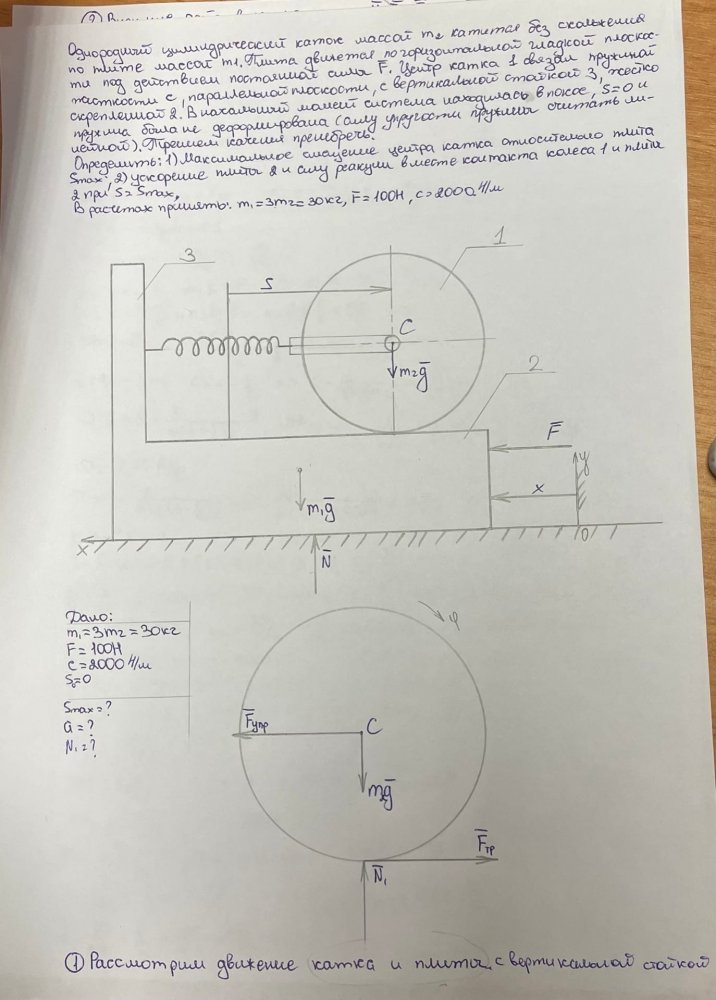 Однородный цилиндрический каток массой m₂ катится без скольжения
по плите массой m₁. Плита движется по горизонтальной гладкой плоскос-
ти под действием постоянной силы F̅. Центр катка 1 связан пружиной
жесткости c, параллельной плоскости, с вертикальной стойкой 3, жестко
скрепленной 2. В начальный момент система находилась в покое, S=0 и
пружина была не деформирована (силу упругости пружины считать ли-
нейной). Трением качения пренебречь.
Определить: 1) Максимальное смещение центра катка относительно плиты
Smax; 2) ускорение плиты 2 и силу реакции в месте контакта колеса 1 и плиты
2 при S=Smax,
В расчетах принять: m₁=3m₂=30кг, F̅=100Н, c=2000 Н/м
3
1
S
C
m₂g̅
2
F̅
y
x
m₁g̅
x
N̅
0
Дано:
m₁=3m₂=30кг
F=100Н
c=2000 Н/м
S₀=0
Smax=?
a=?
N₁=?
φ
F̅упр
C
m₂g̅
F̅тр
N̅₁
① Рассмотрим движение катка и плиты с вертикальной стойкой